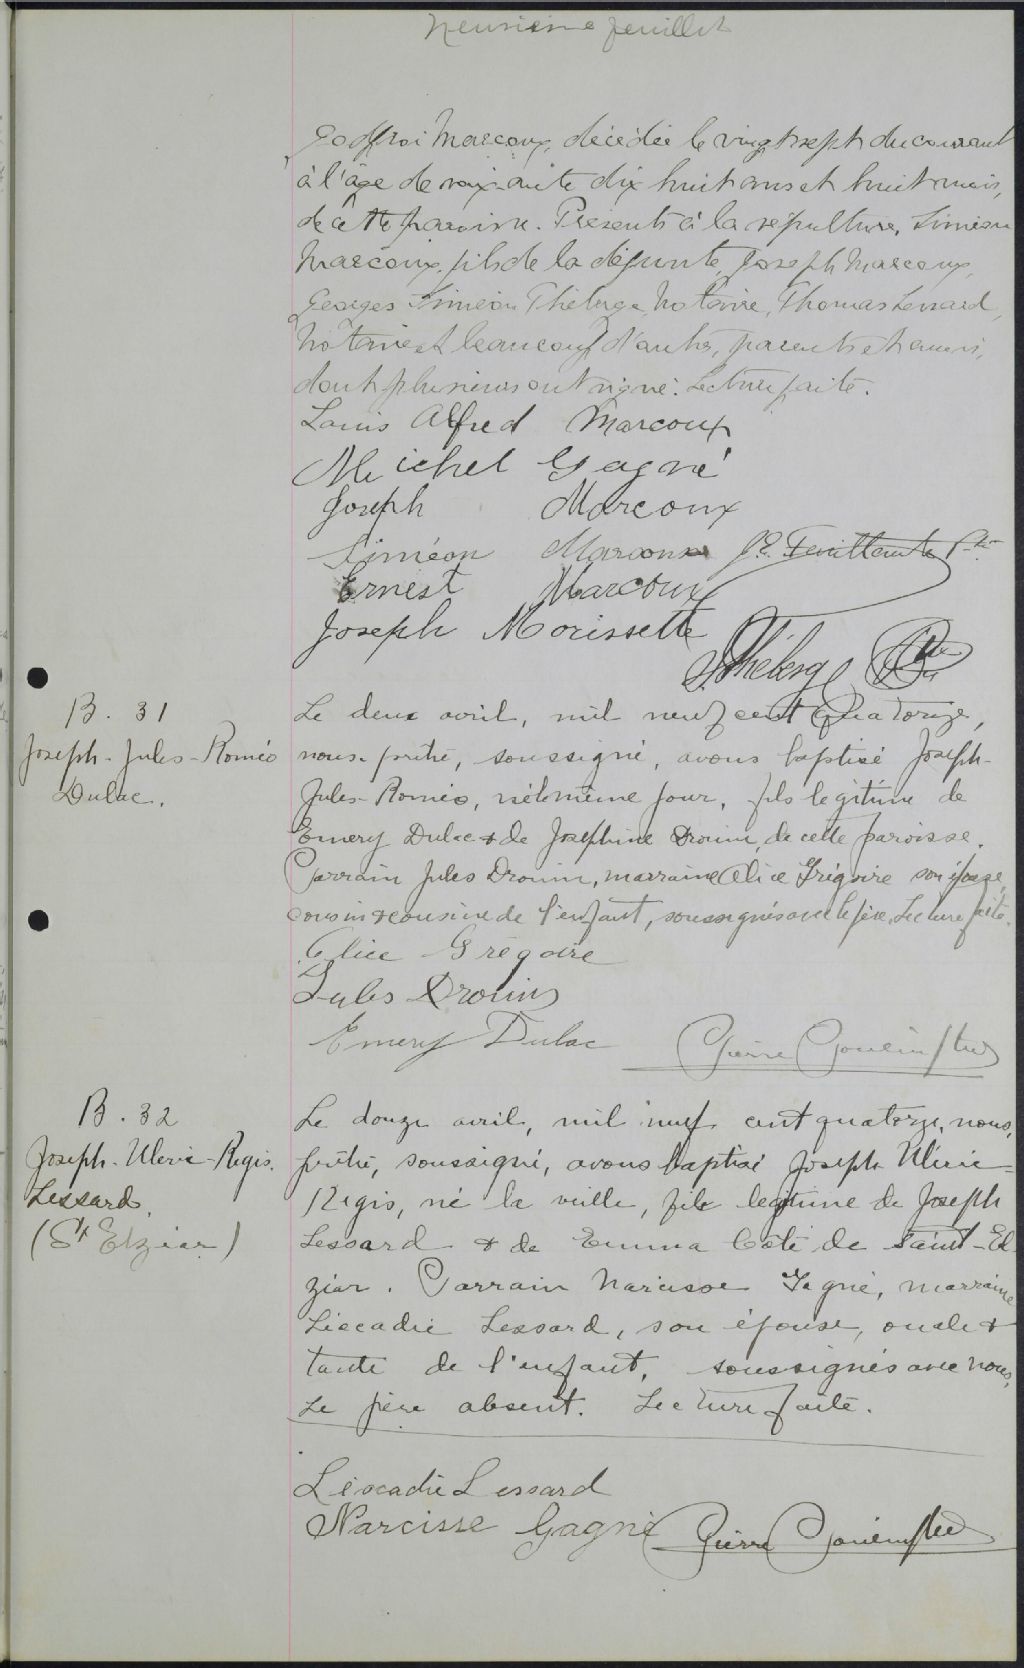 Neuvième feuillet
Godfroi Marcoux, décédée le vingt sept du courant
à l'âge de soixante dix huit ans et huit mois,
de cette paroisse. Présents à la sépulture, Siméon
Marcoux, fils de la défunte, Joseph Marcoux,
Georges Siméon Théberge, Notaire, Thomas Lessard,
Notaire et beaucoup d'autres, parents et amis,
dont plusieurs ont signé. Lecture faite.
Louis Alfred Marcoux
Michel Gagné
Joseph Marcoux
Siméon Marcoux J. E. Feuiltault Ptre
Ernest Marcoux
Joseph Morissette
Théberge Ptre
B. 31
Joseph-Jules-Roméo
Dulac.
Le deux avril, mil neuf cent quatorze,
nous prêtre, soussigné, avons baptisé Joseph-
Jules-Roméo, né le même jour, fils légitime de
Emery Dulac & de Joséphine Drouin, de cette paroisse.
Parrain Jules Drouin, marraine Alice Grégoire son épouse,
cousin & cousine de l'enfant, soussignés avec le père. Lecture faite.
Alice Grégoire
Jules Drouin
Emery Dulac Pierre Gouin Ptre
B. 32
Joseph-Ulric-Regis.
Lessard.
(St Elzéar)
Le douze avril, mil neuf cent quatorze, nous,
prêtre, soussigné, avons baptisé Joseph Ulric-
Régis, né la veille, fils légitime de Joseph
Lessard & de Emma Côté de Saint-El
zéar. Parrain Narcisse Gagné, marraine
Léocadie Lessard, son épouse, oncle &
tante de l'enfant, soussignés avec nous,
Le père absent. Lecture faite.
Léocadie Lessard
Narcisse Gagné Pierre Gouin Ptre